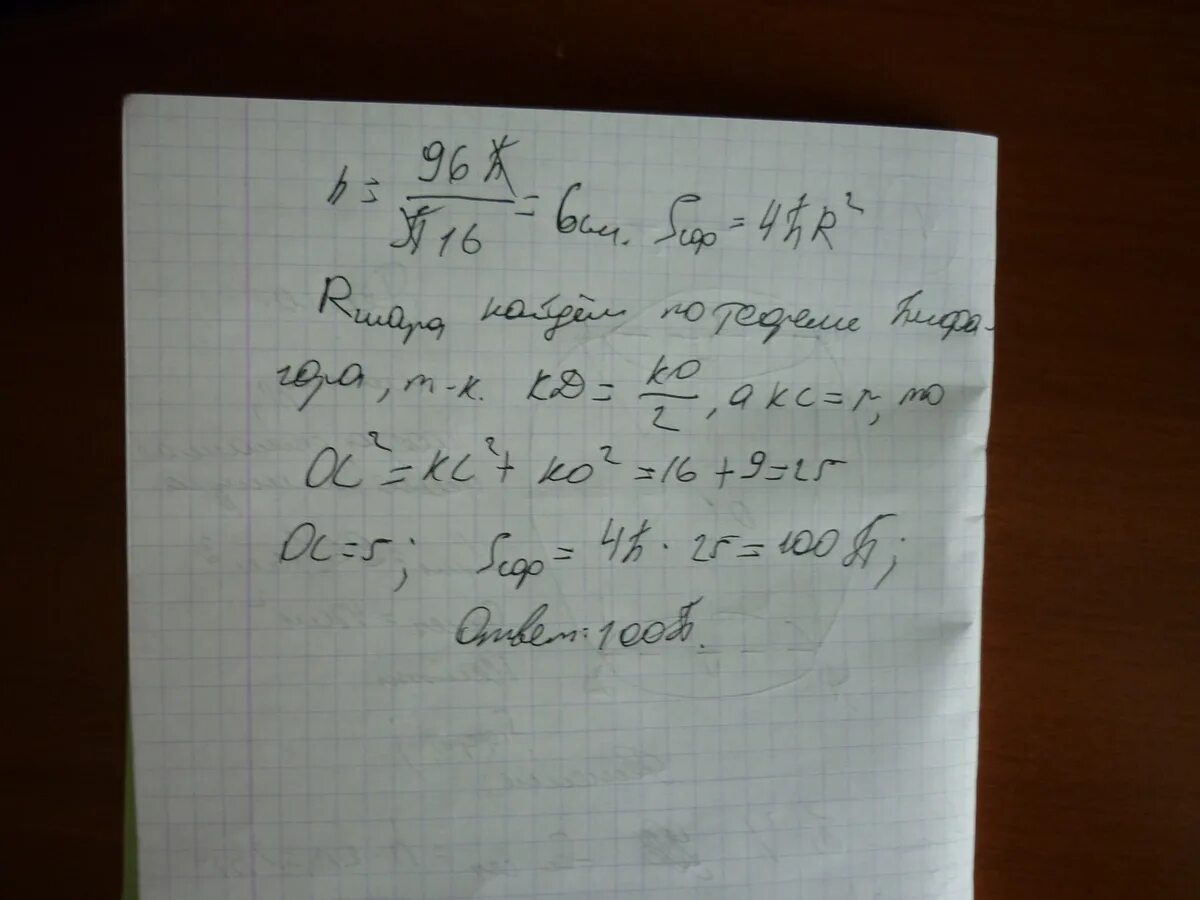 h = 96π / π16 = 6см. Sсф = 4πR²
Rшара найдём по теореме Пифа-
гора, т-к. КД = КО / 2, а КС = r, то
ОС² = КС² + КО² = 16 + 9 = 25
ОС = 5; Sсф = 4π · 25 = 100π;
Ответ: 100π.